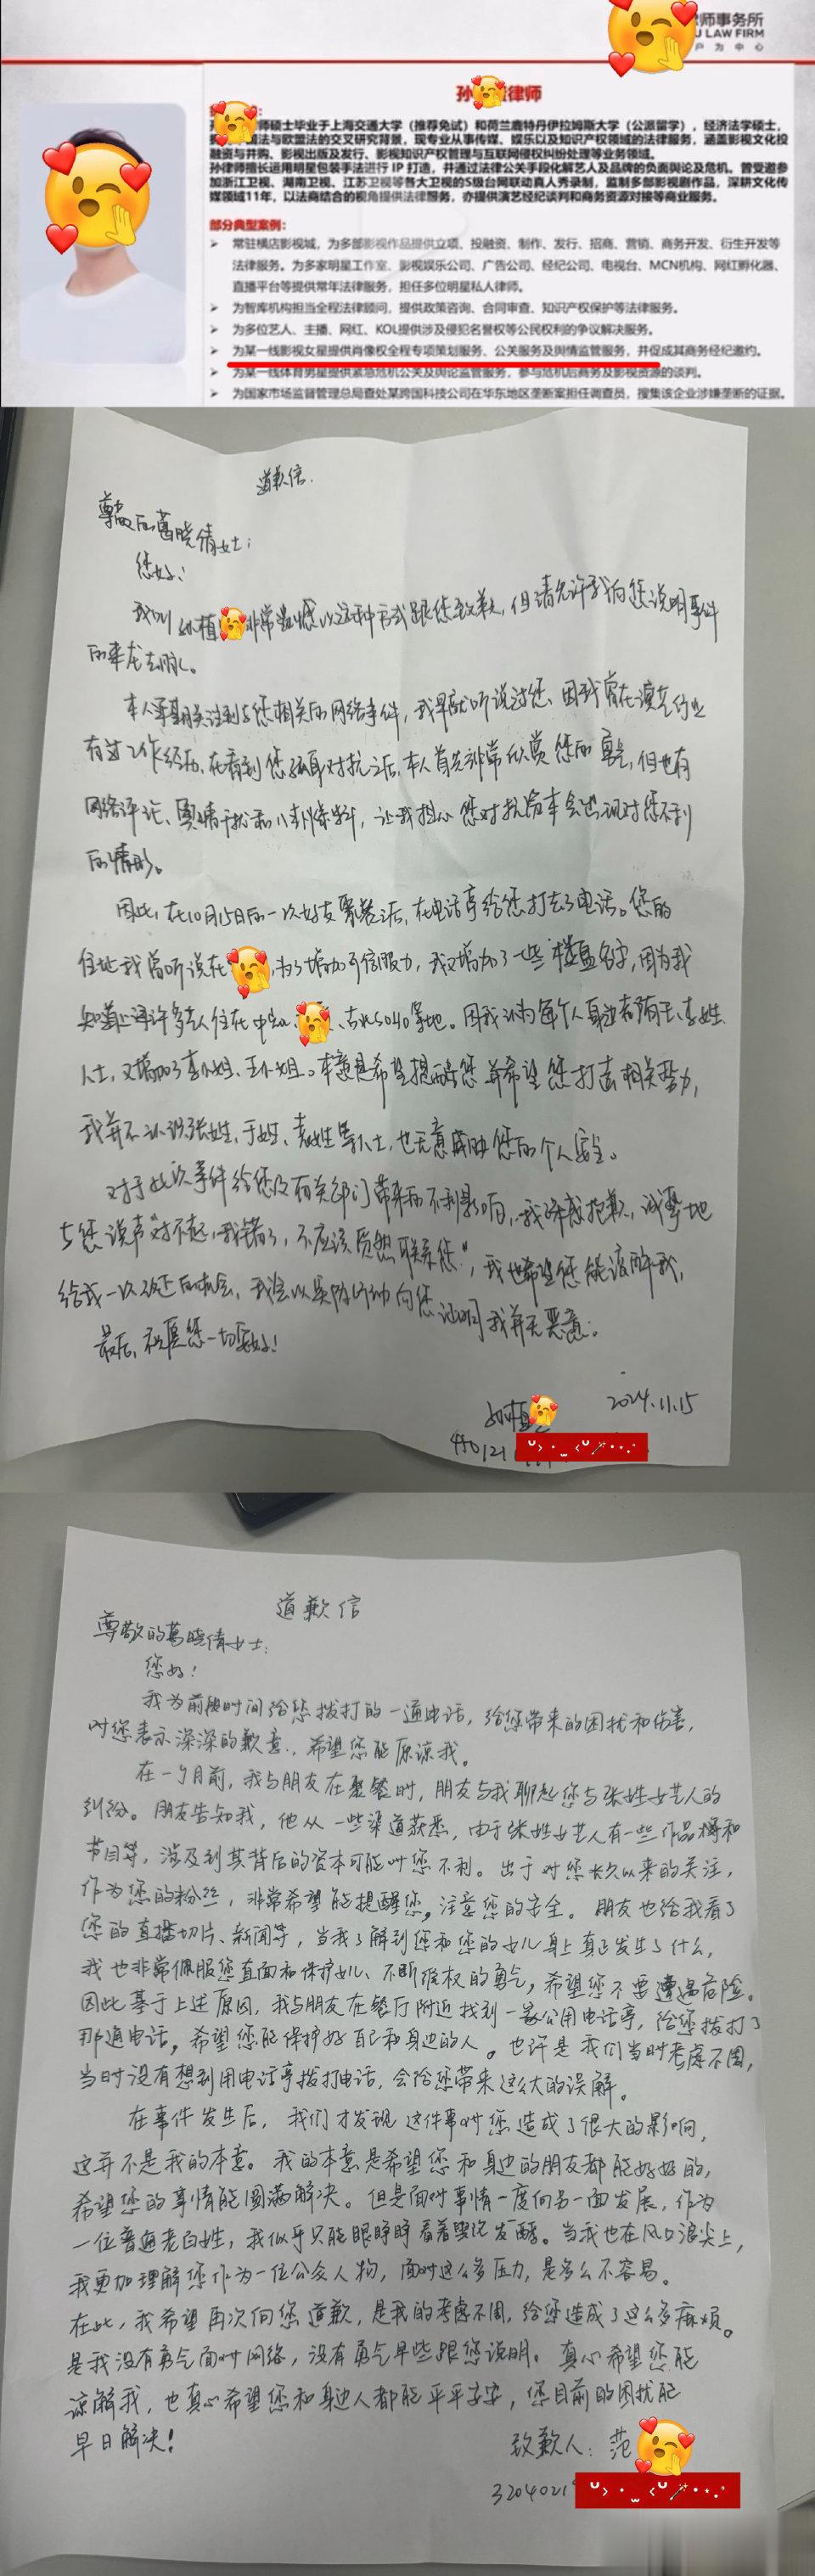 律师事务所
LAW FIRM
户 为 中 心
孙 律师
师硕士毕业于上海交通大学（推荐免试）和荷兰鹿特丹伊拉姆斯大学（公派留学），经济法学硕士，
法与欧盟法的交叉研究背景，现专业从事传媒、娱乐以及知识产权领域的法律服务，涵盖影视文化投
融资与并购、影视出版及发行、影视知识产权管理与互联网侵权纠纷处理等业务领域。
孙律师擅长运用明星包装手法进行 IP 打造，并通过法律公关手段化解艺人及品牌的负面舆论及危机。曾受邀参
加浙江卫视、湖南卫视、江苏卫视等各大卫视的S级台网联动真人秀录制，监制多部影视剧作品，深耕文化传
媒领域11年，以法商结合的视角提供法律服务，亦提供演艺经纪谈判和商务资源对接等商业服务。
部分典型案例：
常驻横店影视城，为多部影视作品提供立项、投融资、制作、发行、招商、营销、商务开发、衍生开发等
法律服务。为多家明星工作室、影视娱乐公司、广告公司、经纪公司、电视台、MCN机构、网红孵化器、
直播平台等提供常年法律服务，担任多位明星私人律师。
为智库机构担当全程法律顾问，提供政策咨询、合同审查、知识产权保护等法律服务。
为多位艺人、主播、网红、KOL提供涉及侵犯名誉权等公民权利的争议解决服务。
为某一线影视女星提供肖像权全程专项策划服务、公关服务及舆情监管服务，并促成其商务经纪邀约。
为某一线体育男星提供紧急危机公关及舆论监管服务，参与危机后商务及影视资源的谈判。
为国家市场监督管理总局查处某跨国科技公司在华东地区垄断案担任调查员，搜集该企业涉嫌垄断的证据。
道歉信.
尊敬的葛晓倩女士：
您好！
我叫孙植 非常 以这种方式跟您致歉，但请允许我向您说明事件
的来龙去脉。
本人 关注到与您相关的网络事件，我早就听说过您、因我曾在演艺行业
有过工作经历，在看到您 对抗之后，本人首先非常欣赏您的勇气，但也有
网络评论、舆情干扰和八卦爆料，让我担心您对抗资本会出现对您不利
的情形。
因此，在10月15日的一次好友聚餐之后，在电话亭给您打去了电话。您的
住址我曾听说在 ，为了增加可信服力，我又增加了一些楼盘名字，因为我
知道上海许多艺人住在中 、 、古北SOHO等地。因我认为每个人身边都有王、李姓
人士，又增加了李小姐、王小姐。本意是希望提醒您并希望您打击相关势力，
我并不认识张姓、于姓、 姓等人士，也无意威胁您的个人安全。
对于此次事件给您及有关部门带来的不利影响，我深感抱歉，诚挚地
与您说声“对不起，我错了，不应该贸然联系您”，我也希望您能谅解我，
给我一次改正的机会，我会以实际行动向您证明我并无恶意。
最后，祝愿您一切安好！
孙植 2024.11.15
道歉信
尊敬的葛晓倩女士：
您好！
我为前段时间给您拨打的一通电话，给您带来的困扰和伤害，
对您表示深深的歉意，希望您能原谅我。
在一个月前，我与朋友在聚餐时，朋友与我聊起您与张姓女艺人的
纠纷。朋友告知我，他从一些渠道获悉，由于张姓女艺人有一些作品 和
节目等，涉及到其背后的资本可能对您不利。出于对您长久以来的关注，
作为您的粉丝，非常希望能提醒您，注意您的安全。朋友也给我看了
您的直播切片、新闻等，当我了解到您和您的女儿身上真正发生了什么，
我也非常佩服您直面和保护女儿、不断维权的勇气，希望您不要遭遇危险。
因此基于上述原因，我与朋友在餐厅附近找到一家公用电话亭，给您拨打了
那通电话，希望您能保护好自己和身边的人。也许是我们当时考虑不周，
当时没有想到用电话亭拨打电话，会给您带来这么大的误解。
在事件发生后，我们才发现这件事对您造成了很大的影响，
这并不是我的本意。我的本意是希望您和身边的朋友都能好好的，
希望您的事情能圆满解决。但是面对事情一度向另一面发展，作为
一位普通老百姓，我似乎只能眼睁睁看着舆论发酵。当我也在风口浪尖上，
我更加理解您作为一位公众人物，面对这么多压力，是多么不容易。
在此，我希望再次向您道歉，是我的考虑不周，给您造成了这么多麻烦。
是我没有勇气面对网络，没有勇气早些跟您说明。真心希望您能
谅解我，也真心希望您和身边人都能平平安安，您目前的困扰能
早日解决！
致歉人：范
3204021